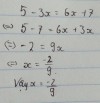 5 - 3x = 6x + 7
(=) 5 - 7 = 6x + 3x
(=) -2 = 9x
(=) x = -2/9
Vậy x = -2/9